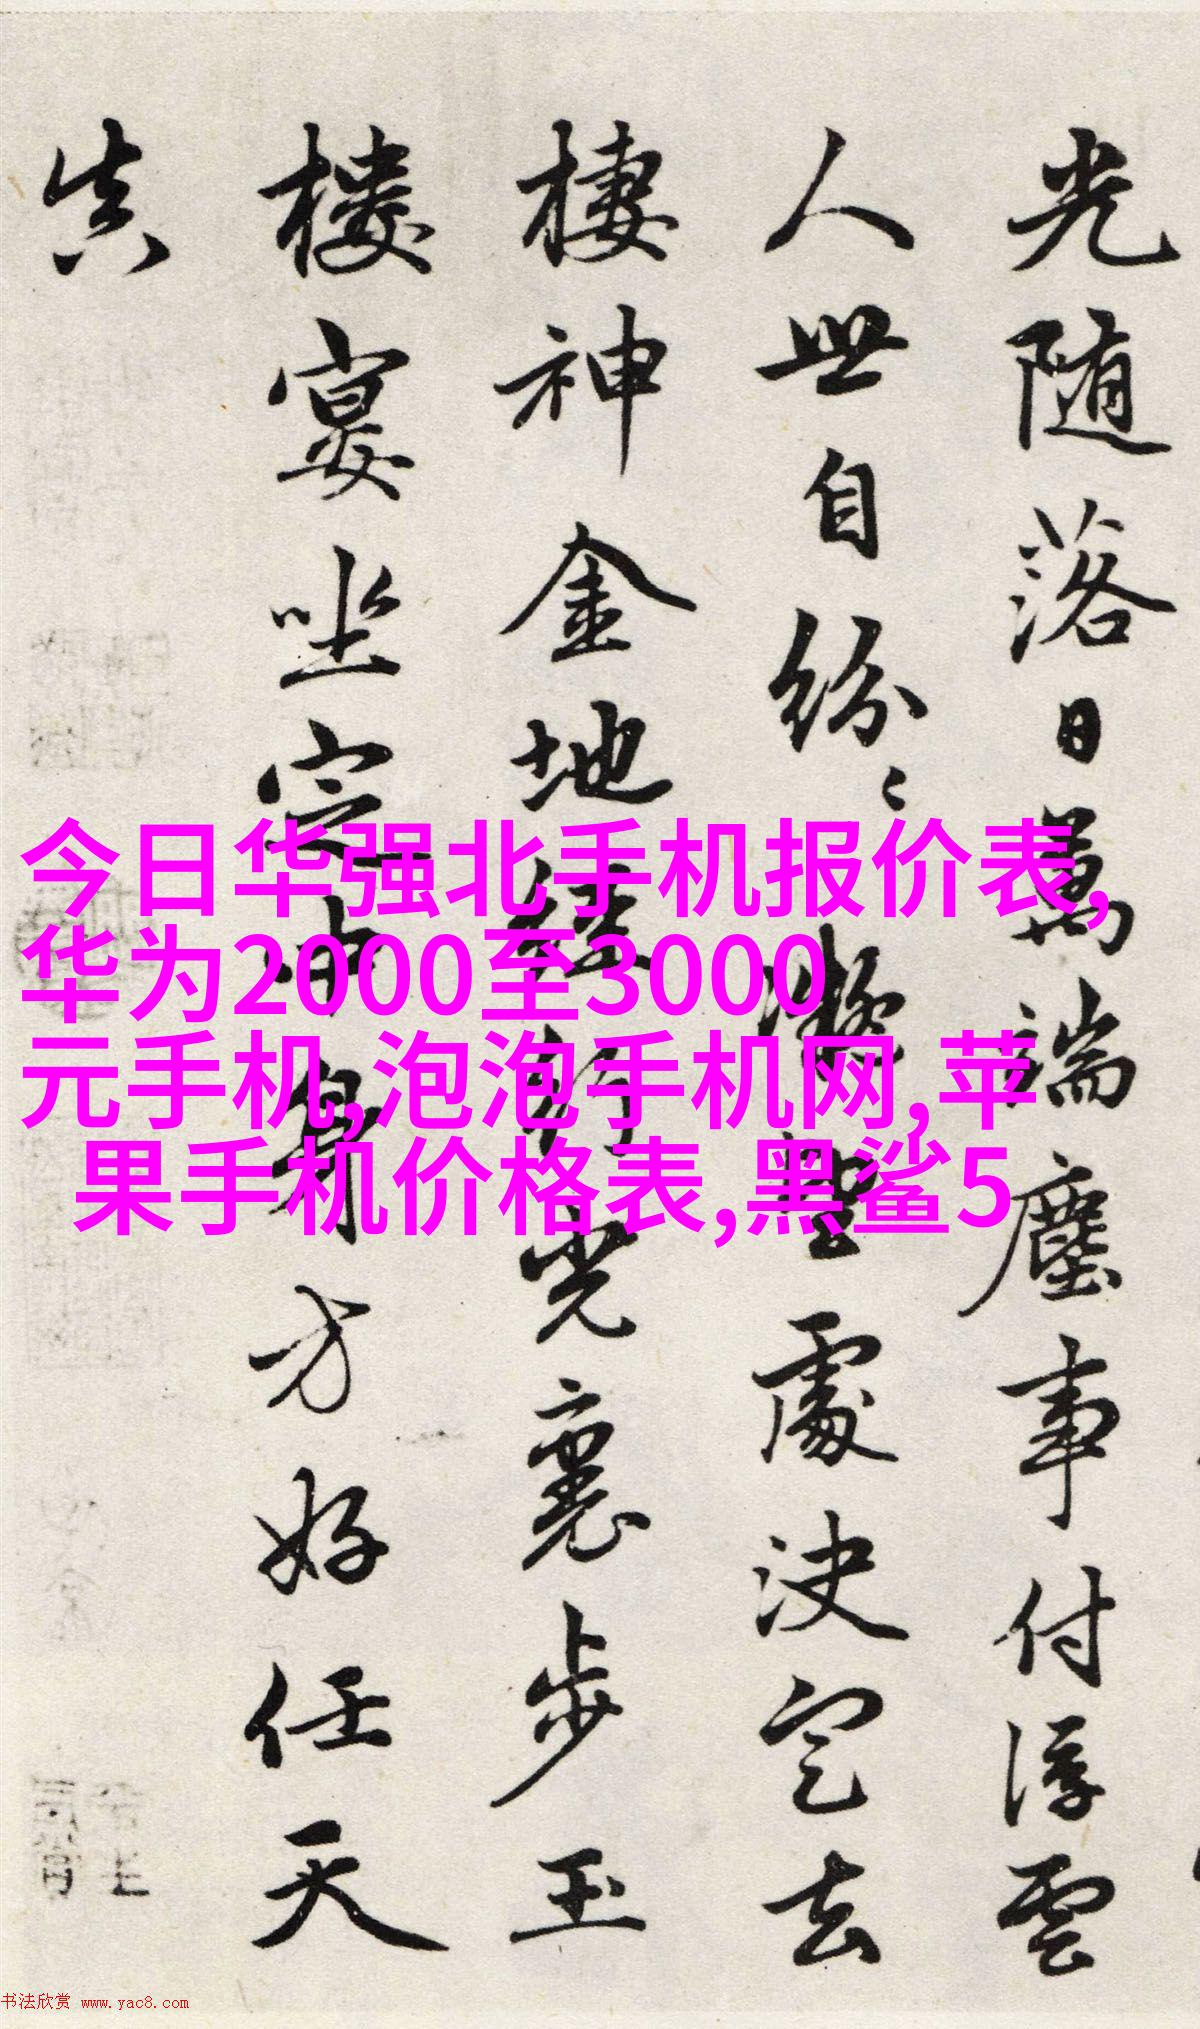 光随落日萬端塵事付浮雲
人世自紛〻凝塑處決定去
棲神金地經行光裏步玉
楼宴坐定中身方好任天
真
今日华强北手机报价表,
华为2000至3000
元手机,泡泡手机网,苹
果手机价格表,黑鲨5
书法欣赏 www.yac8.com